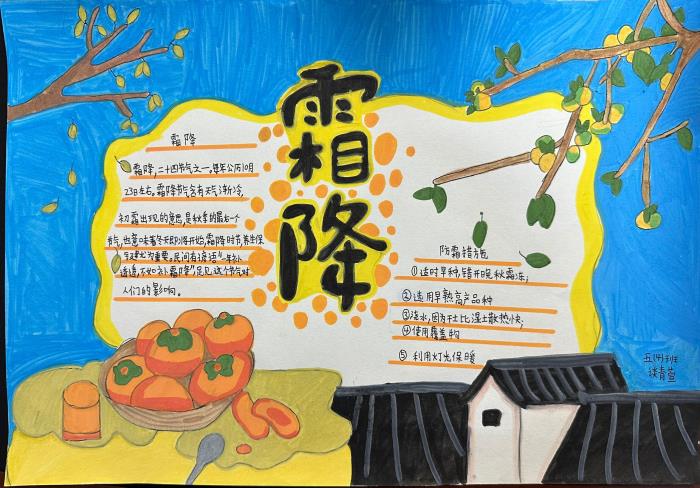 霜降
霜降
霜降,二十四节气之一,每年公历10月
23日左右。霜降节气含有天气渐冷,
初霜出现的意思,是秋季的最后一个
节气,也意味着冬天即将开始,霜降时节,养生保
健尤为重要。民间有谚语“一年补
透透,不如补霜降”足见这个节气对
人们的影响。
防霜措施
①适时早种,错开晚秋霜冻;
②选用早熟高产品种
③浇水,因为干土比湿土散热快,
④使用覆盖物
⑤利用灯光保暖
五(4)班